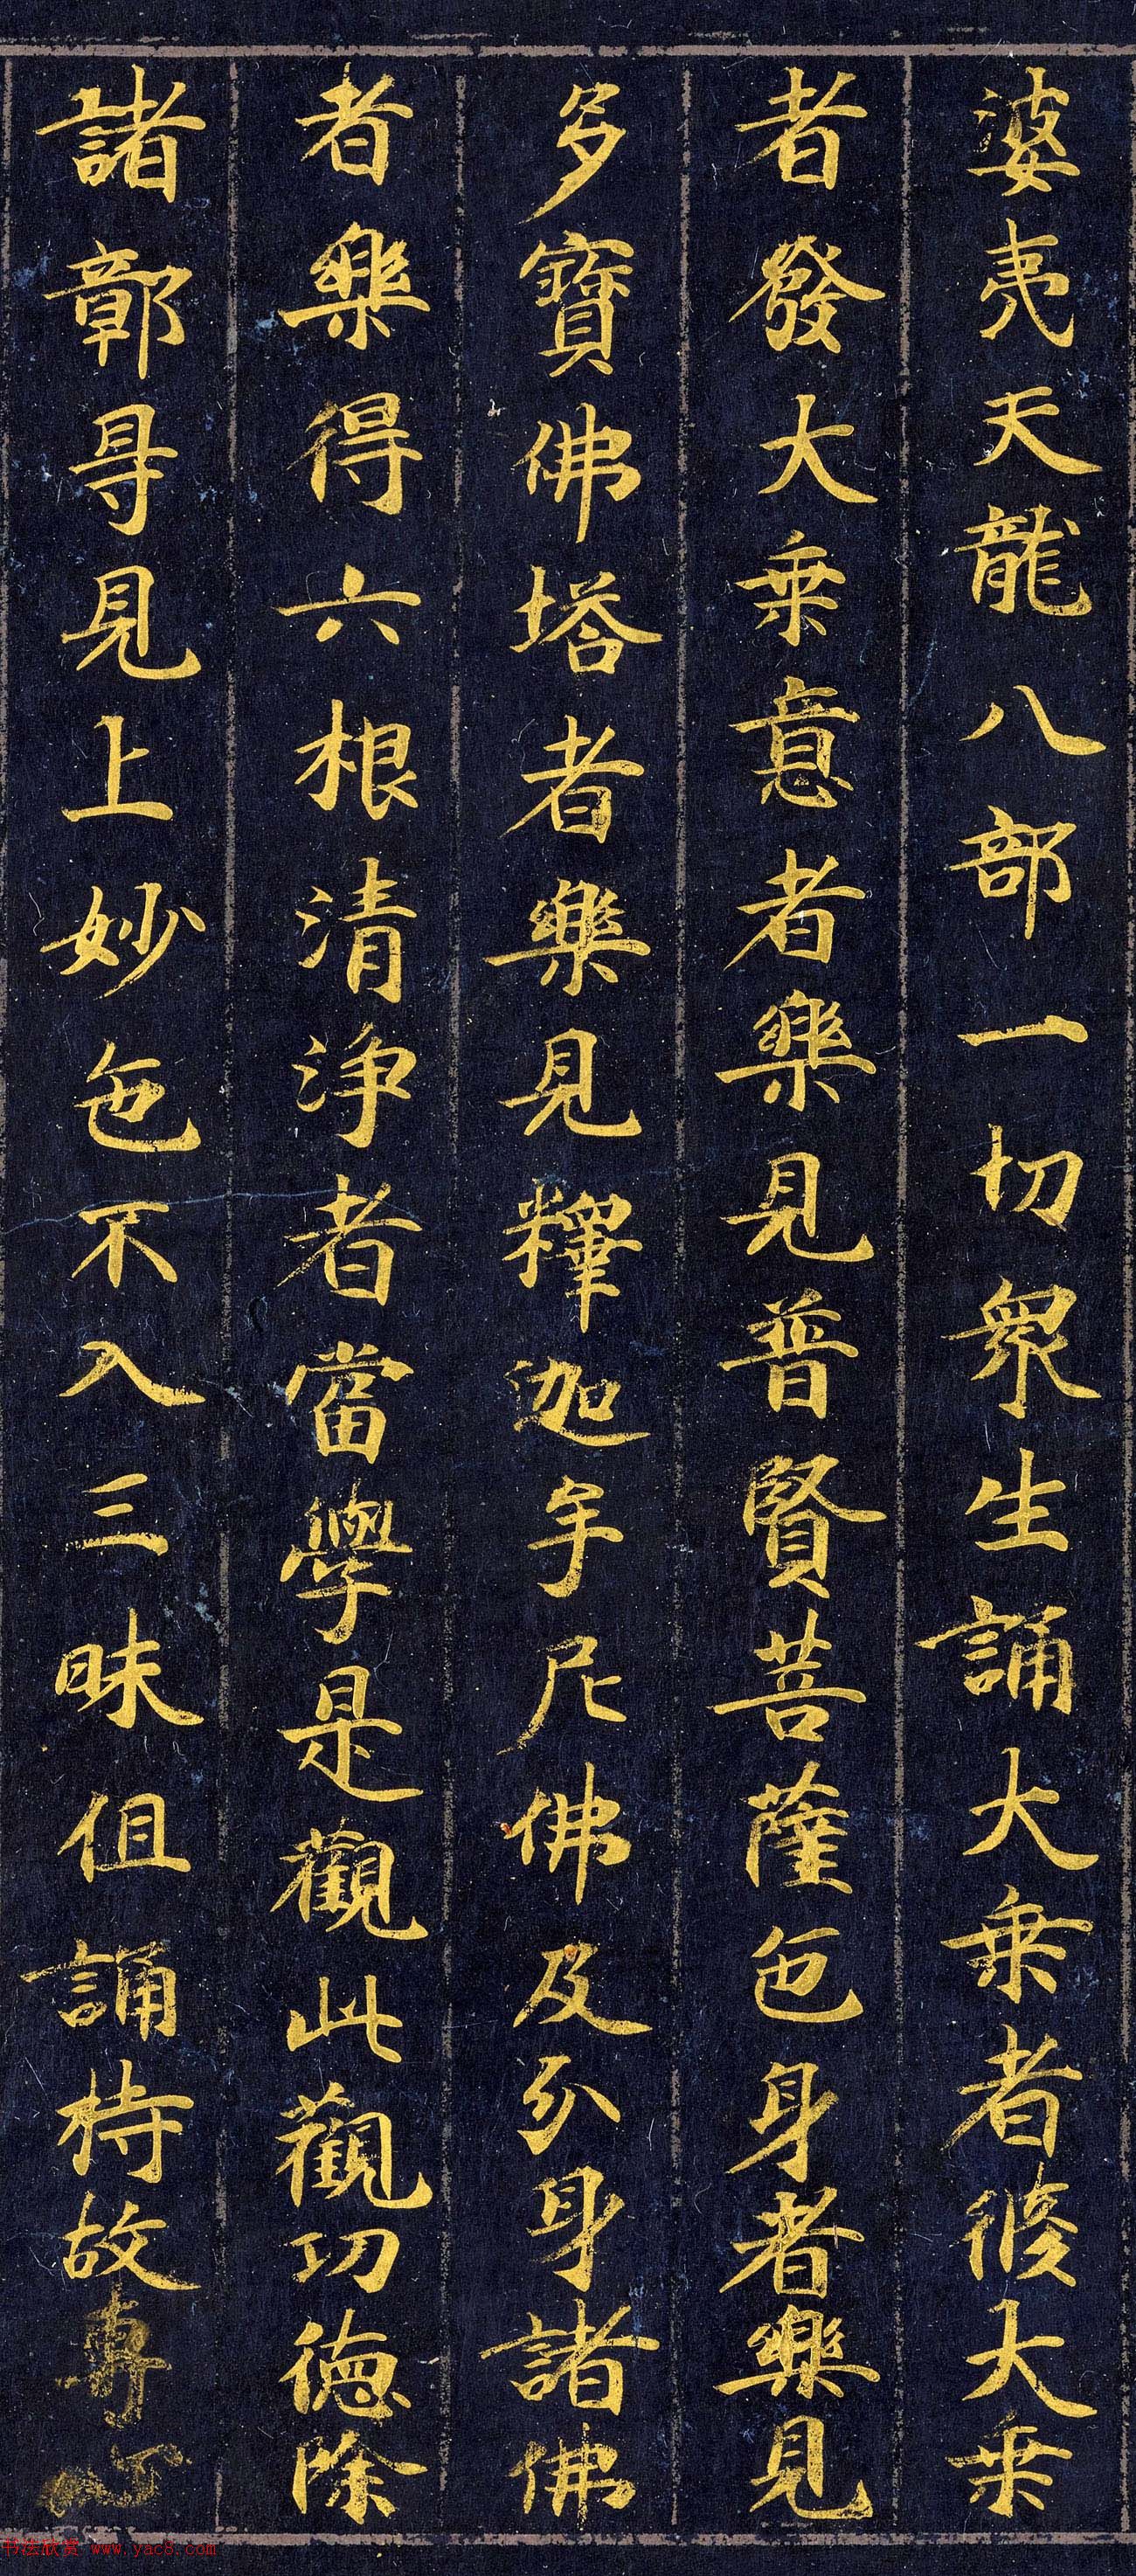 婆夷天龍八部一切衆生誦大乗者修大乗
者發大乗意者樂見普賢菩薩色身者樂見
多寶佛塔者樂見釋迦牟尼佛及分身諸佛
者樂得六根清淨者當學是觀此觀功德除
諸鄣㝵見上妙色不入三昧但誦持故專心
书法欣赏 www.yac8.com